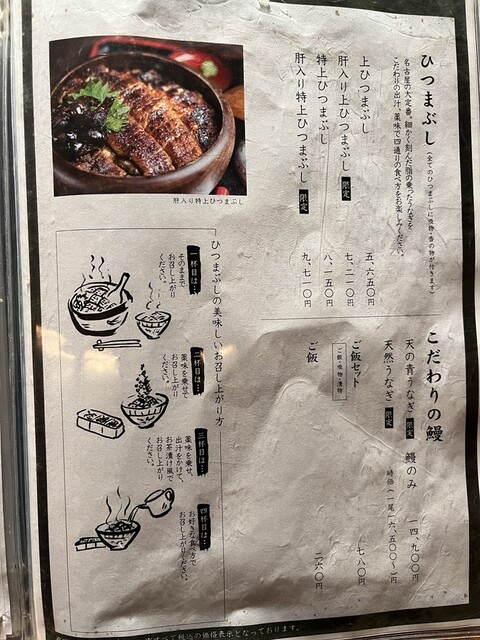 ひつまぶし（全てのひつまぶしに吸物・香の物が付きます）
名古屋の大定番。細かく刻んだ脂の乗ったうなぎを
こだわりの出汁、薬味で四通りの食べ方をお楽しみください。
上ひつまぶし 五、六五〇円
肝入り上ひつまぶし 限定 七、二一〇円
特上ひつまぶし 八、一五〇円
肝入り特上ひつまぶし 限定 九、七一〇円
肝入り特上ひつまぶし
こだわりの鰻
天の青うなぎ 限定 鰻のみ 一四、九〇〇円
天然うなぎ 限定 時価（一尾一六、五〇〇〜）円
ご飯セット 七八〇円
ご飯・吸物・漬物
ご飯 二六〇円
ひつまぶしの美味しいお召し上がり方
一杯目は…
そのままで
お召し上がり
ください。
二杯目は…
薬味を乗せて
お召し上がり
ください。
三杯目は…
薬味を乗せ、
出汁をかけて、
お茶漬け風で
お召し上がり
ください。
四杯目は…
お好きな食べ方で
お召し上がりください。
税込の価格表示となっております。